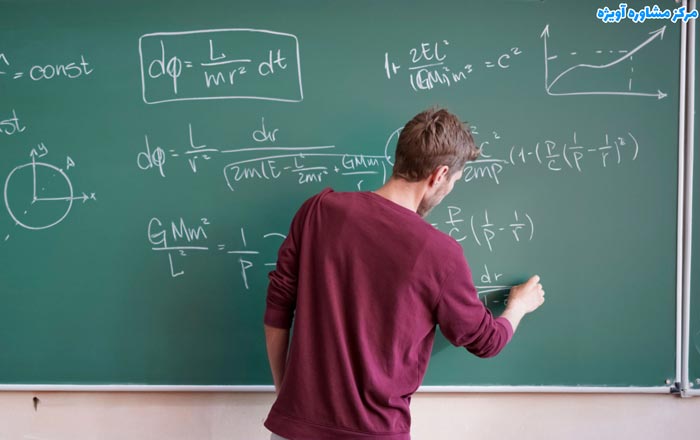 مرکز مشاوره آویژه
= const
dφ = L/mr² dt
1+ 2EL²/(GM)²m³ = c²
dφ = L/r² dr/√2m(E - L²/2mr² + GMm/r)
c²/2mp (1-(p/c(1/p - 1/r)²)
GMm²/L² = 1/p
p/c (1/p - 1/r)
dr
y
x